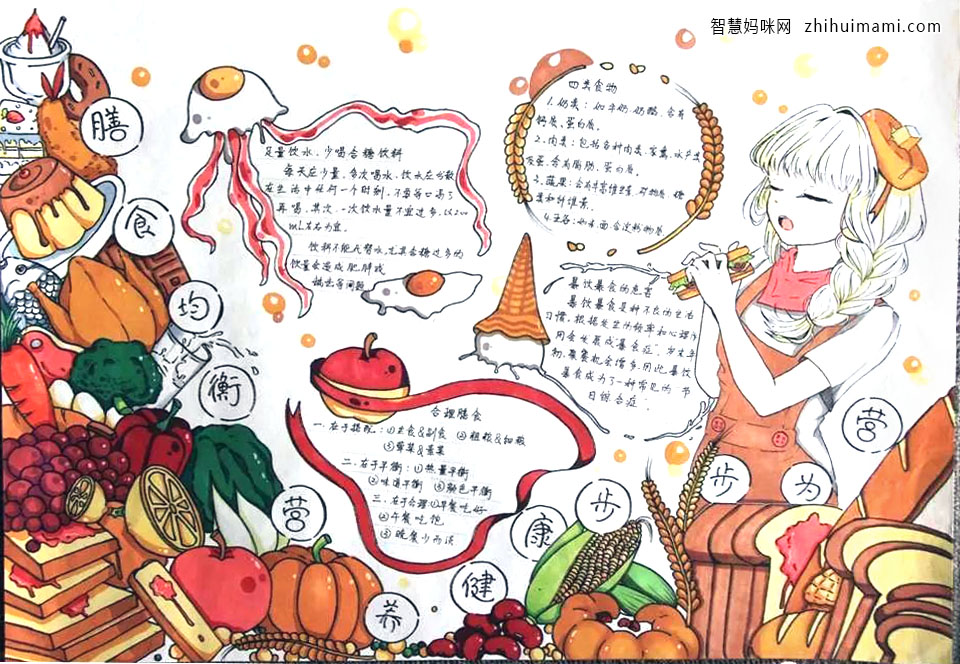 智慧妈咪网 zhihuimami.com
膳
食
均
衡
营
养
健
康
步
步
为
营
足量饮水、少喝含糖饮料
每天应少量、多次喝水、饮水应当散
在生活中任何一个时刻,不要等口渴了
再喝。其次,一次饮水量不宜过多,以200
mL左右为宜。
饮料不能代替水,尤其含糖过多的
饮量会造成肥胖或
龋齿等问题
四类食物
1.奶类:如牛奶奶酪,含有
钙质、蛋白质。
2.肉类:包括各种肉类、家禽、水产类
及蛋,含有脂肪、蛋白质。
3.蔬果:含有丰富维生素、矿物质、糖
类和纤维素。
4.五谷:如米、面含淀粉物质
暴饮暴食的危害
暴饮暴食是种不良的生活
习惯,根据发生的频率和心理作
用会发展成"暴食症",岁末年
初,聚餐机会增多,因此,暴饮
暴食成为了一种常见的"节
日综合症。
合理膳食
一.在于搭配:①主食&副食 ②粗粮&细粮
③荤菜&素菜
二.在于平衡:①热量平衡
②味道平衡 ③颜色平衡
三.在于合理①早餐吃好
②午餐吃饱
③晚餐少而淡